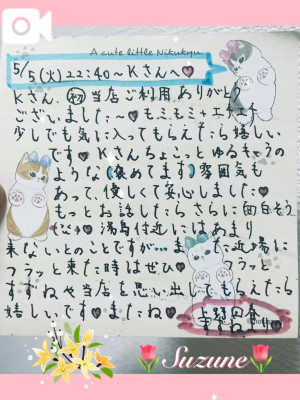 A cute little Nikukyu
5/5(火)22:40〜Kさんへ♥
Kさん、初当店ご利用ありがとう
ございました〜♥もミもミ+エチエチ
少しでも気に入ってもらえたら嬉しい
です♥Kさんちょこっとゆるキャラの
ような(褒めてます)雰囲気も
あって、優しくて安心しました
もっとお話したらさらに面白そう
湯島付近にはあまり
来ないとのことですが…また近場に
フラッと来た時はぜひ♥フラッと
すずねや当店を思い出してもらえたら
嬉しいです♥またね♥
Suzune